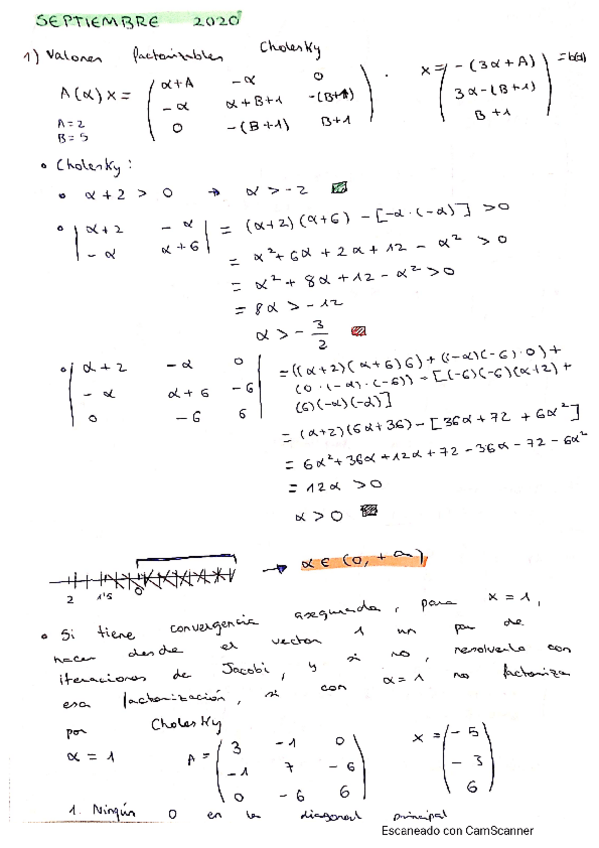 SEPTIEMBRE 2020
1) Valores factorizables Cholesky
A(α)x = ( α+A -α 0 ) . x = ( -(3α+A) ) = b(α)
( -α α+B+1 -(B+1) ) ( 3α-(B+1) )
( 0 -(B+1) B+1 ) ( B+1 )
A=2
B=5
• Cholesky:
• α+2 > 0 → α > -2
• | α+2 -α | = (α+2)(α+6) - [-α·(-α)] > 0
| -α α+6 | = α²+6α+2α+12-α² > 0
= α²+8α+12-α² > 0
= 8α > -12
α > -3/2
• | α+2 -α 0 | = ((α+2)(α+6)6) + ((-α)(-6)·0) +
| -α α+6 -6 | (0·(-α)·(-6)) - [(-6)(-6)(α+2) +
| 0 -6 6 | (6)(-α)(-α)]
= (α+2)(6α+36) - [36α+72+6α²]
= 6α²+36α+12α+72-36α-72-6α²
= 12α > 0
α > 0
2 1'5 0 → α ∈ (0, +∞)
• Si tiene convergencia asegurada, para x=1,
hacer desde el vector 1 un par de
iteraciones de Jacobi, y si no, resolverlo con
esa factorización, si con α=1 no factoriza
por Cholesky
α=1 A = ( 3 -1 0 ) x = ( -5 )
( -1 7 -6 ) ( -3 )
( 0 -6 6 ) ( 6 )
1. Ningún 0 en la diagonal principal
Escaneado con CamScanner